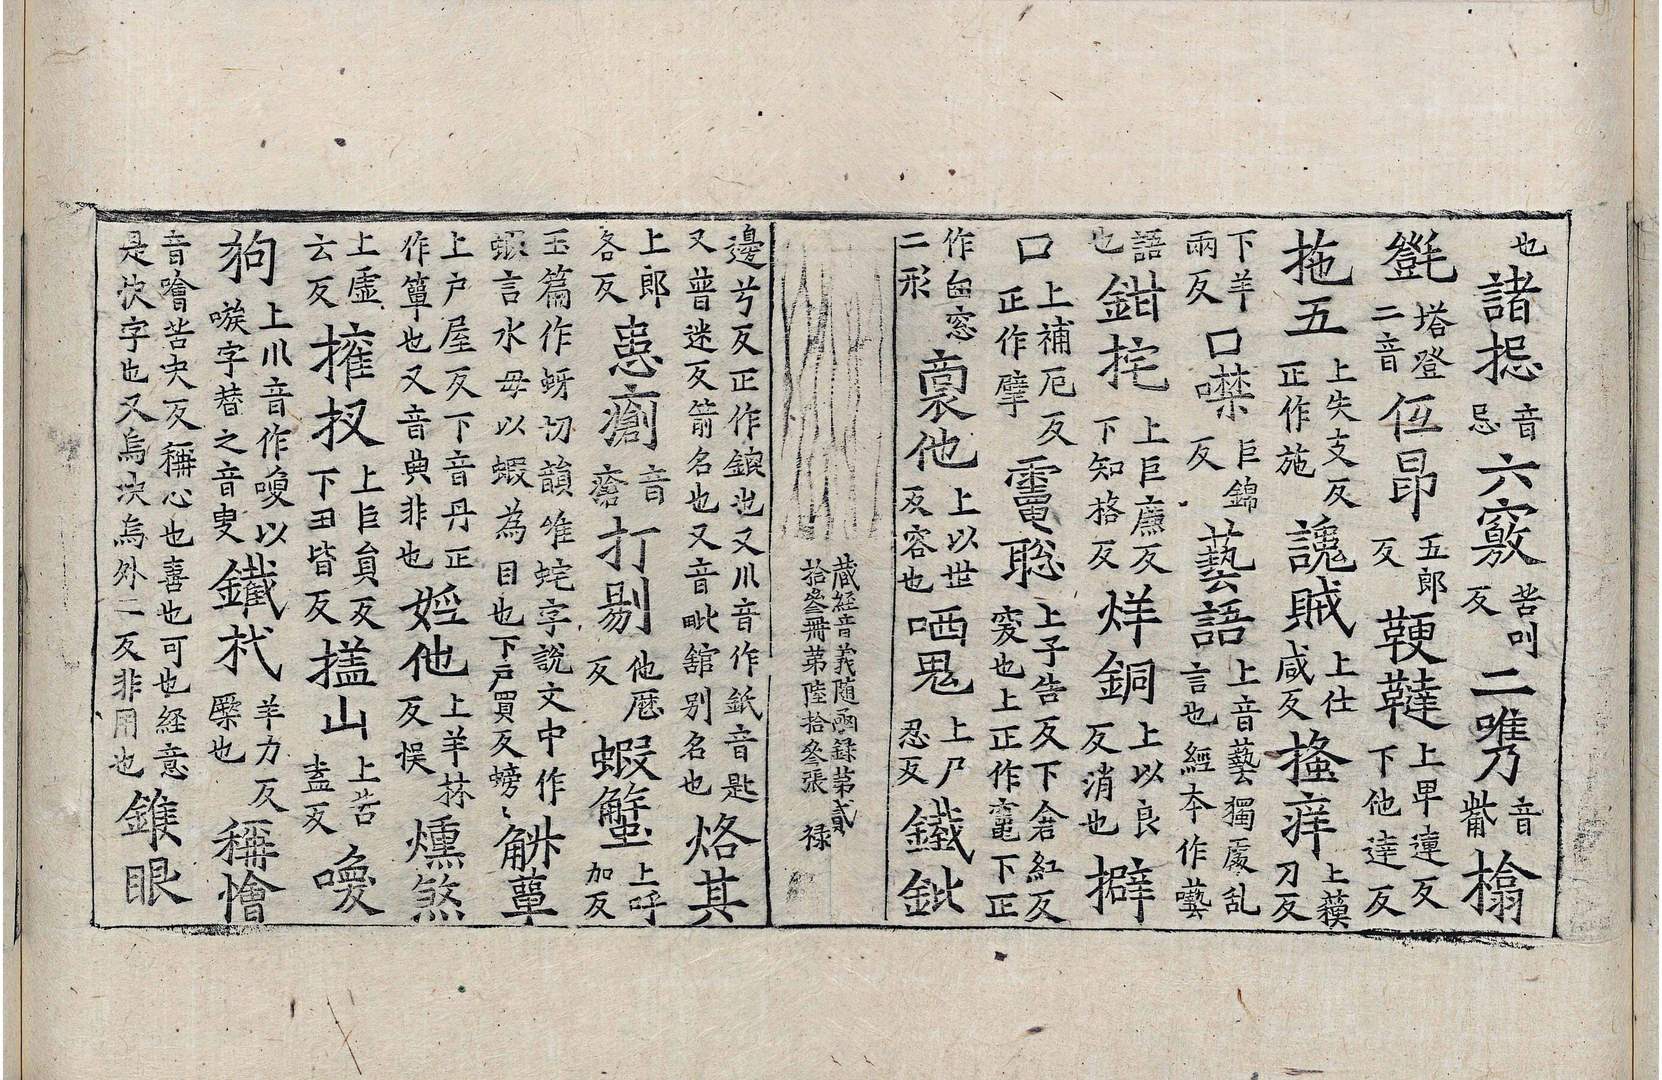 也諸㧑音忌六竅苦叫反二㗱音觜搚
㲪塔登二音伍昂五郎反鞕韃上早連反下他達反
拖五上失支反正作施䜐賊上仕咸反搔痒上蘓刀反
下羊兩反口噤巨錦反藝語上音藝獨處乱言也經本作囈
語也鉗㧌上巨廉反下知格反烊銅上以良反消也擗
口上補厄反正作擘䨩聡上子告反下倉紅反竃也上正作竈下正
作囱窓二形裔他上以世反容也哂㒻上尸忍反鐵鈚
藏經音義随函録第貳拾叄冊第陸拾叄張 禄
邊兮反正作錍也又川音作鈲音匙又普迷反箭名也又音毗錧别名也烙其
上郎各反惡瘡音瘡打剔他歴反蝦蟹上呼加反
玉篇作蚜切韻作蛇字說文中作蝦言水母以蝦為目也下户買反螃〻觪簟
上户屋反下音丹正作簞也又音典非也婬他上羊林反悮爊煞
上虚云反搉扠上巨負反下丑皆反搕山上苦盍反㗋
狗上川音作㗋以㗋字替之音叟鐵杙羊力反橜也稱懀
音噲苦夬反稱心也喜也可也経意是快字也又烏快烏外二反非用也鏙眼